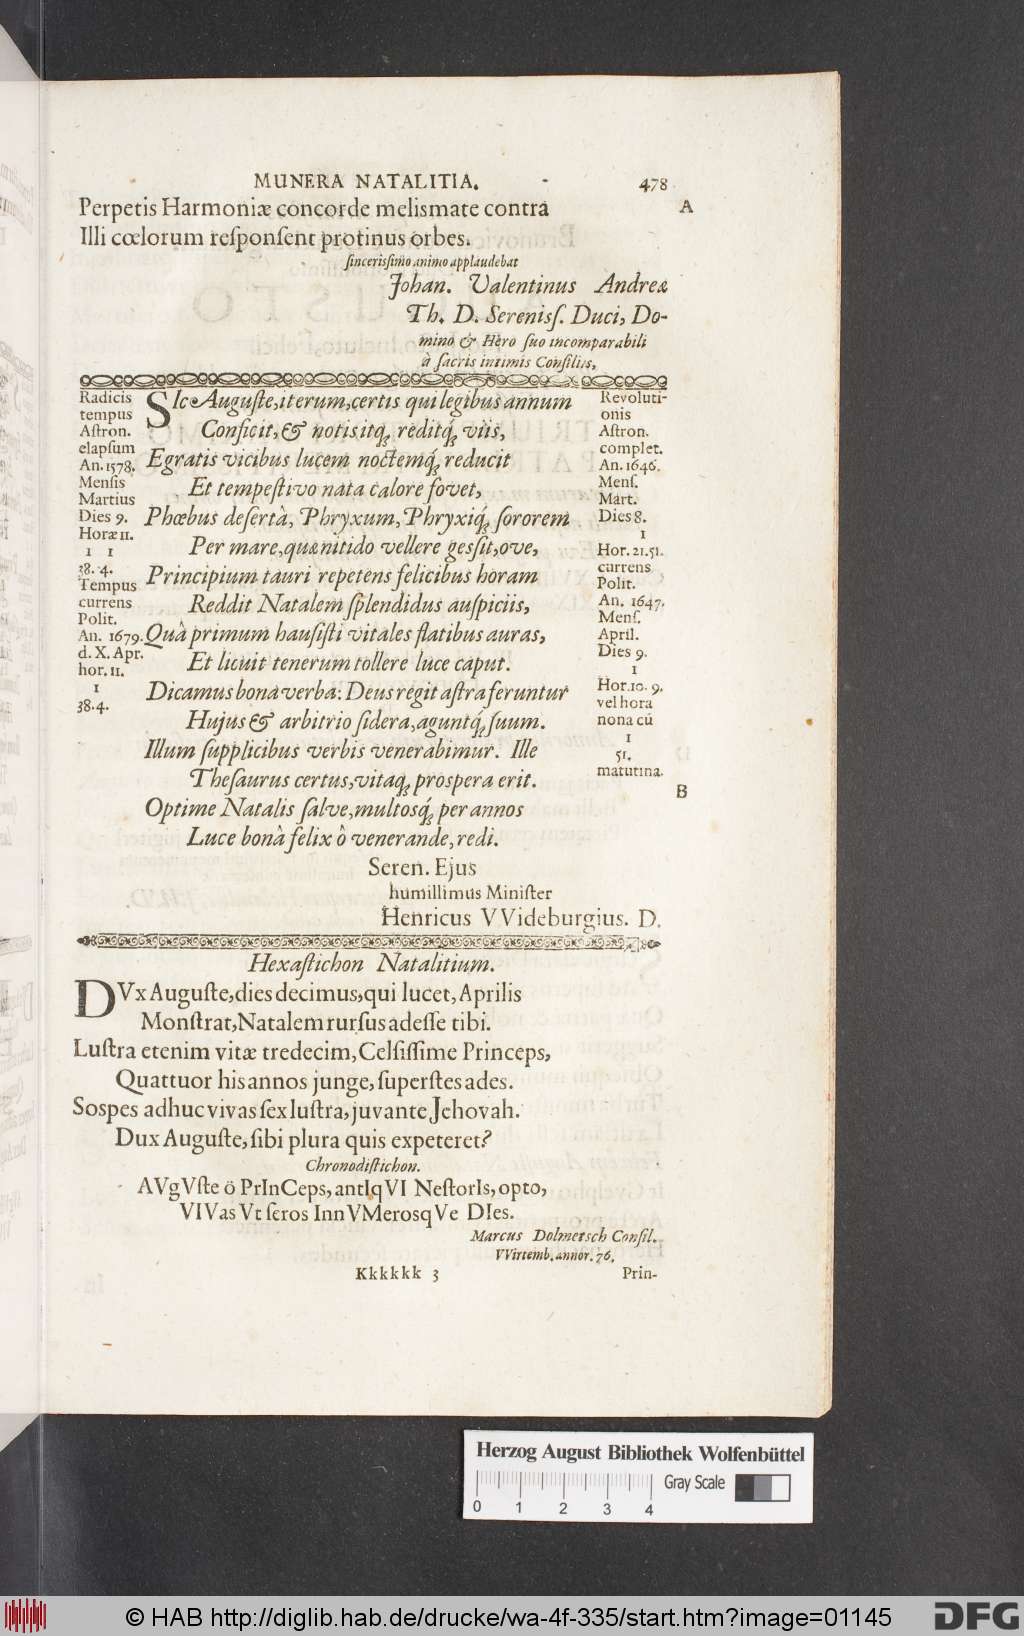 MUNERA NATALITIA.
478
A
Perpetis Harmoniæ concorde melismate contrà
Illi cœlorum reſponſent protinus orbes.
ſinceriſſimo animo applaudebat
Johan. Valentinus Andreæ
Th. D. Sereniſſ. Duci, Do-
mino & Hero ſuo incomparabili
à ſacris intimis Conſiliis,
Radicis
tempus
Aſtron.
elapſum
An. 1578.
Menſis
Martius
Dies 9.
Horæ 11.
1 1
38. 4.
Tempus
currens
Polit.
An. 1679.
d. X. Apr.
hor. 11.
1
38. 4.
SIc Auguſte, iterum, certis qui legibus annum
Conficit, & notis itq́; reditq́; viis,
Egratis vicibus lucem noctemq́; reducit
Et tempeſtivo nata calore fovet,
Phœbus deſertà, Phryxum, Phryxiq́; ſororem
Per mare, quæ nitido vellere geſſit, ove,
Principium tauri repetens felicibus horam
Reddit Natalem ſplendidus auſpiciis,
Quâ primum hauſiſti vitales flatibus auras,
Et licuit tenerum tollere luce caput.
Dicamus bona verba: Deus regit aſtra feruntur
Hujus & arbitrio ſidera, aguntq́; ſuum.
Illum ſupplicibus verbis venerabimur. Ille
Theſaurus certus, vitaq; proſpera erit.
Optime Natalis ſalve, multosq́; per annos
Luce bonâ felix ô venerande, redi.
Revoluti-
onis
Aſtron.
complet.
An. 1646.
Menſ.
Mart.
Dies 8.
1
Hor. 21. 51.
currens
Polit.
An. 1647.
Menſ.
April.
Dies 9.
1
Hor. 10. 9.
vel hora
nona cū
1
51.
matutina.
B
Seren. Ejus
humillimus Miniſter
Henricus VVideburgius. D.
Hexaſtichon Natalitium.
DVx Auguſte, dies decimus, qui lucet, Aprilis
Monſtrat, Natalem rurſus adeſſe tibi.
Luſtra etenim vitæ tredecim, Celſiſſime Princeps,
Quattuor his annos junge, ſuperſtes ades.
Soſpes adhuc vivas ſex luſtra, juvante Jehovah.
Dux Auguſte, ſibi plura quis expeteret?
Chronodiſtichon.
AVgVſte ö PrInCeps, antIqVI NeſtorIs, opto,
VIVas Vt ſeros InnVMerosqVe DIes.
Marcus Dolmetsch Conſil.
VVirtemb. annor. 76.
Kkkkkk 3
Prin-
Herzog August Bibliothek Wolfenbüttel
Gray Scale
0 1 2 3 4
© HAB http://diglib.hab.de/drucke/wa-4f-335/start.htm?image=01145
DFG